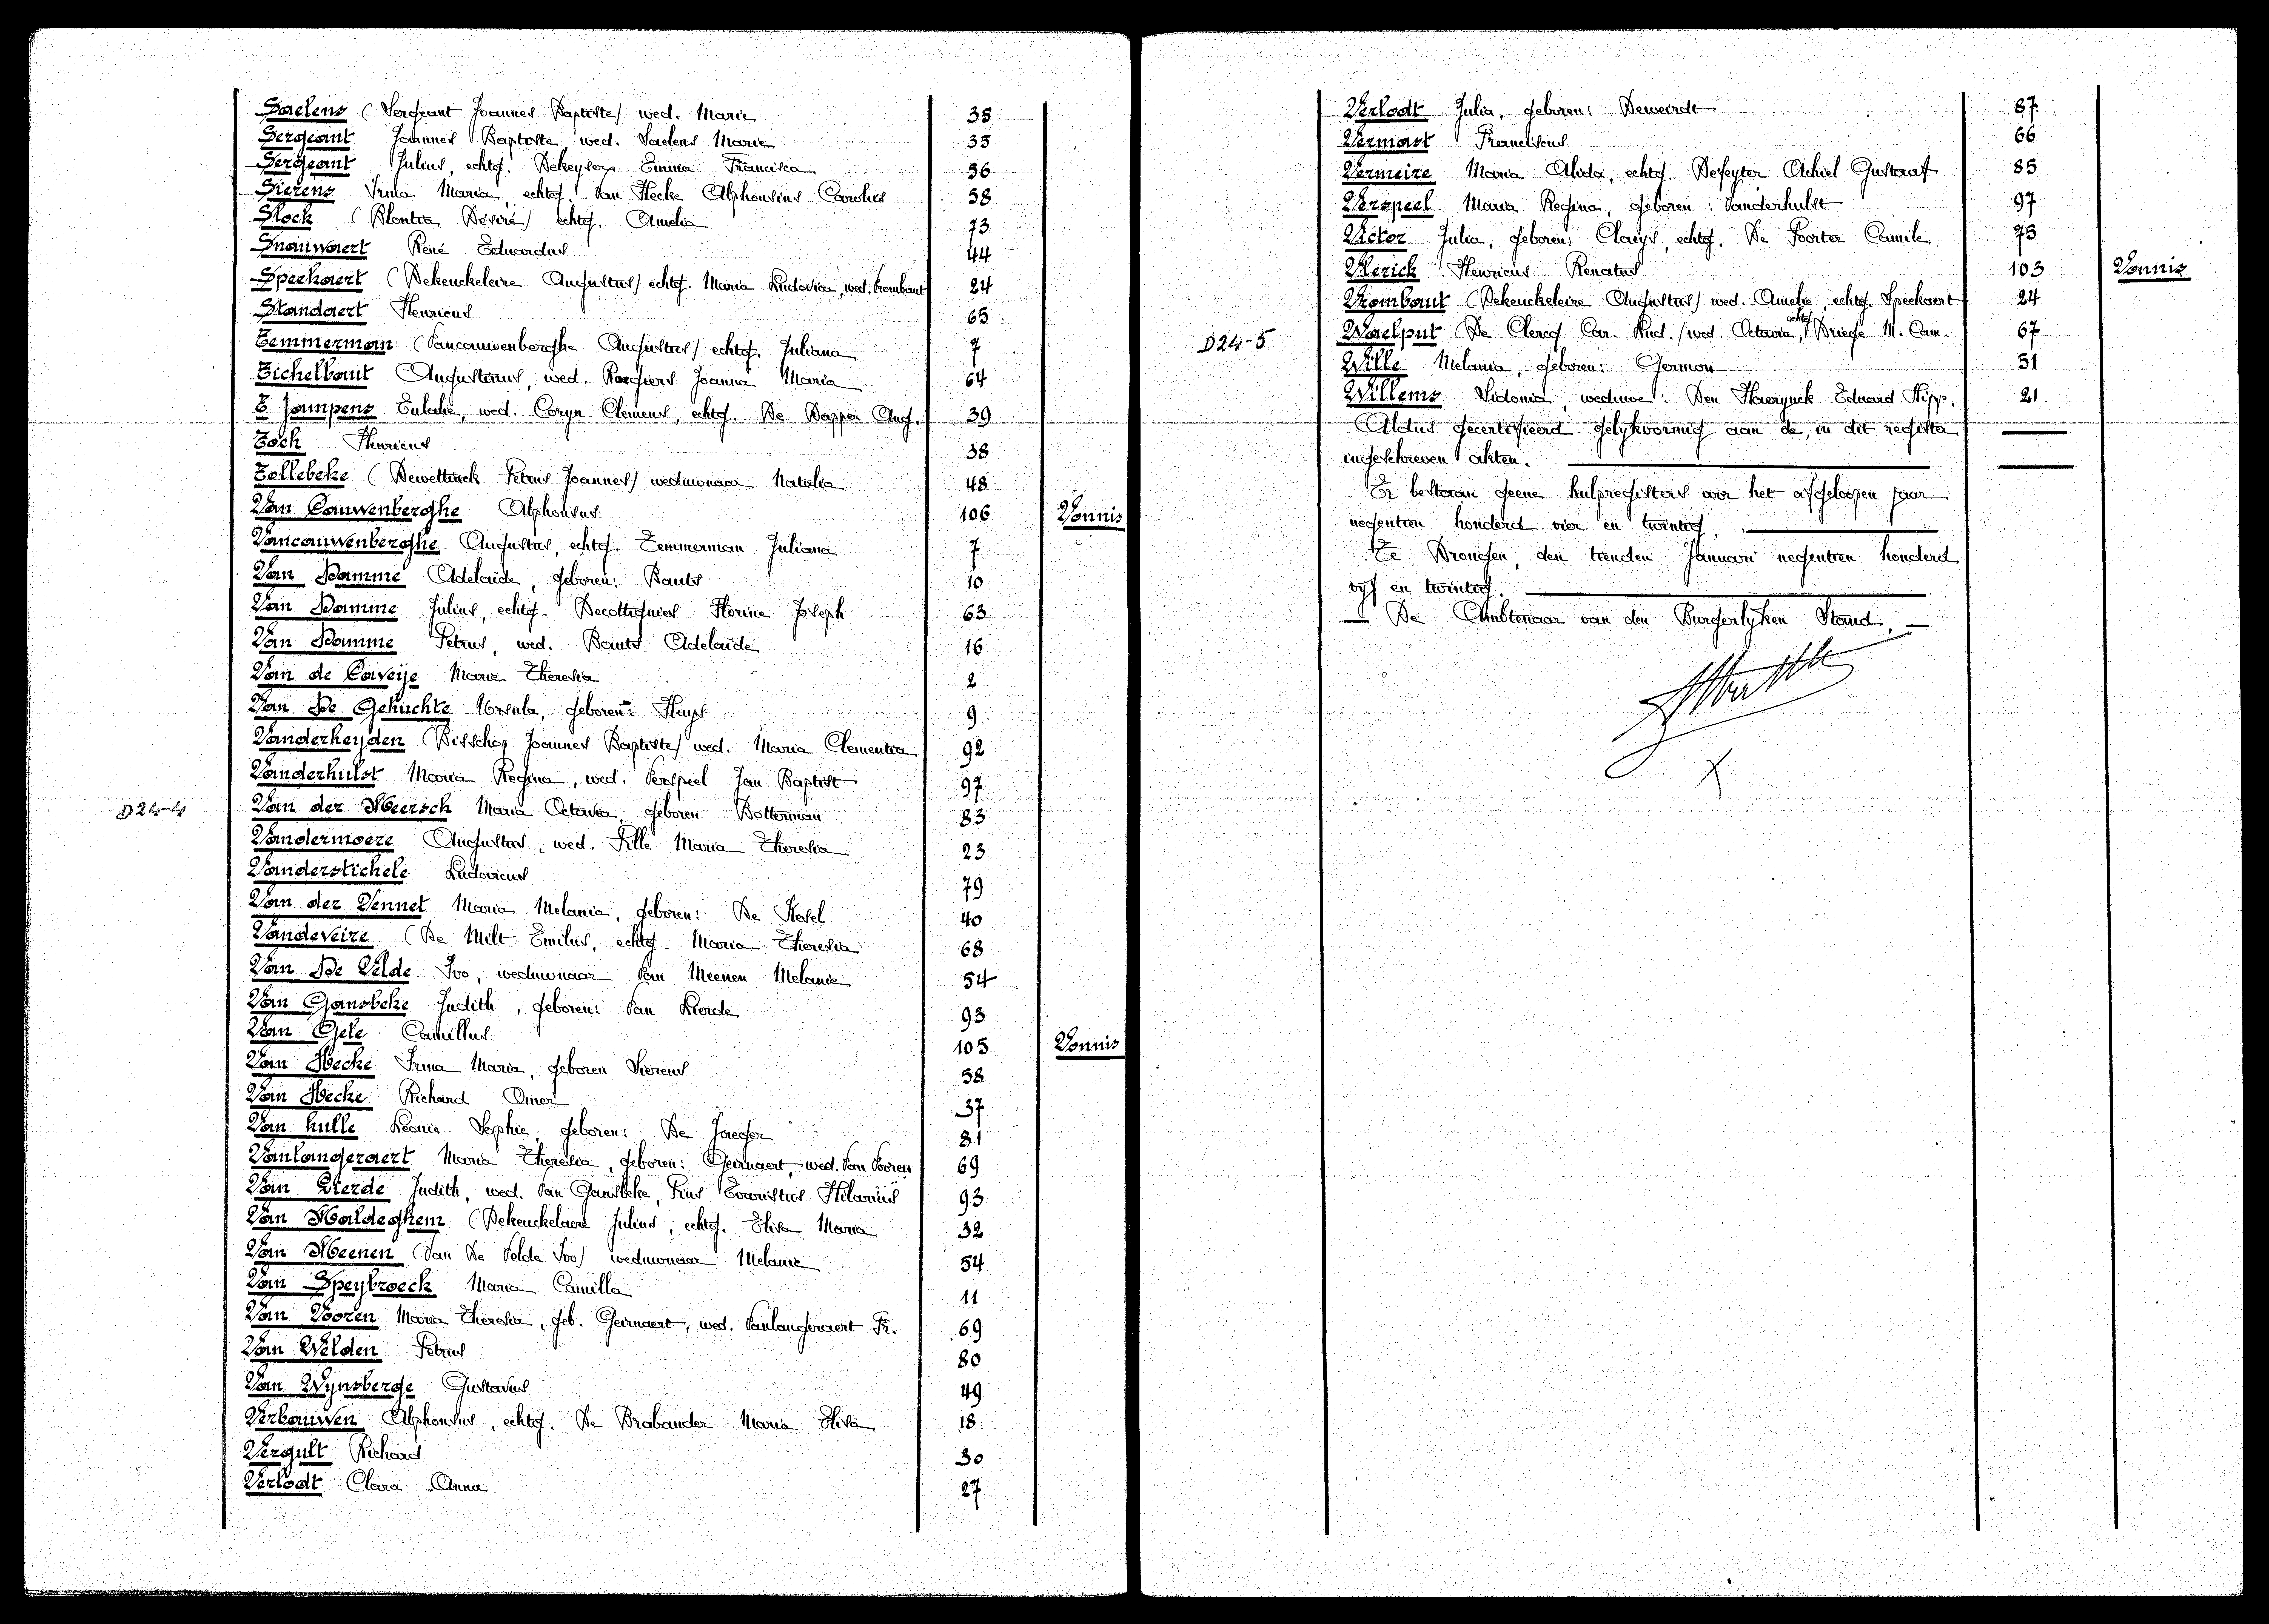 Saelens (Sergeant Joannes Baptiste) wed. Marie 35
Sergeant Joannes Baptiste, wed. Saelens Marie 35
Sergeant Julius, echtg. Dekeyser Emma Francisca 56
Sierens Irma Maria, echtg. Van Hecke Alphonsius Carolus 58
Slock (Blontia Désiré) echtg. Amelia 73
Snauwaert René Eduardus 44
Speekaert (Dekeuckeleire Augustus) echtg. Maria Ludovica, wed. Trombaut 24
Standaert Henricus 65
Temmerman (Vancauwenberghe Augustus) echtg. Juliana 7
Tichelbaut Augustinus, wed. Roegiers Joanna Maria 64
T'Jampens Eulalie, wed. Coryn Clemens, echtg. De Dapper Aug. 39
Toch Henricus 38
Tollebeke (Dewettinck Petrus Joannes) weduwnaar Natalia 48
Van Cauwenberghe Alphonsus 106 Vonnis
Vancauwenberghe Augustus, echtg. Temmerman Juliana 7
Van Damme Adelaïde, geboren: Bauts 10
Van Damme Julius, echtg. Decottignies Florine Joseph 63
Van Damme Petrus, wed. Bauts Adelaïde 16
Van de Caveije Marie Theresia 2
Van De Gehuchte Ursula, geboren: Huys 9
Vanderheyden (Bisschop Joannes Baptiste) wed. Maria Clementia 92
Vanderhulst Maria Regina, wed. Verspeel Jan Baptist 97
D24-4
Van der Meersch Maria Octavia, geboren Botterman 83
Vandermoere Augustus, wed. Pille Maria Theresia 23
Vanderstichele Ludovicus 79
Van der Vennet Maria Melania, geboren: De Kesel 40
Vandeveire (De Milt Emilus, echtg. Maria Theresia 68
Van De Velde Ivo, weduwnaar Van Meenen Melanie 54
Van Gansbeke Judith, geboren: Van Lierde 93
Van Gele Camillus 105 Vonnis
Van Hecke Irma Maria, geboren Sierens 58
Van Hecke Richard Omer 37
Van hulle Leonie Sophie, geboren: De Jaeger 81
Vanlangeraert Maria Theresia, geboren: Geirnaert, wed. Van Vooren 69
Van Lierde Judith, wed. Van Gansbeke, Pius Evaristus Hilarius 93
Van Maldeghem (Dekeuckelaere Julius, echtg. Elisa Maria 32
Van Meenen (Van De Velde Ivo) weduwnaar Melanie 54
Van Speybroeck Maria Camilla 11
Van Vooren Maria Theresia, geb. Geirnaert, wed. Vanlangeraert Fr. 69
Van Welden Petrus 80
Van Wynsberge Gustavus 49
Verbauwen Alphonsus, echtg. De Brabander Maria Elisa 18
Vergult Richard 30
Verlodt Clara Anna 27
Verlodt Julia, geboren: Deweirdt 87
Vermast Franciscus 66
Vermeire Maria Alida, echtg. Defeyter Achiel Gustaaf 85
Verspeel Maria Regina, geboren: Vanderhulst 97
Victor Julia, geboren: Claeys, echtg. De Poorter Camile 75
Vlerick Henricus Renatus 103 Vonnis
Vrombaut (Dekeuckeleire Augustus) wed. Amelie, echtg. Speekaert 24
D24-5
Waelput (De Clercq Car. Lud.) wed. Octavia, echtg. Driege M. Cam. 67
Wille Melania, geboren: Germon 31
Willems Sidonia, weduwe: Den Haerynck Eduard Hipp. 21
Aldus gecertifieerd gelijkvormig aan de, in dit register
ingeschreven akten.
Er bestaan geene hulpregisters voor het afgeloopen jaar
negentien honderd vier en twintig.
Te Drongen, den tienden Januari negentien honderd
vijf en twintig.
De Ambtenaar van den Burgerlijken Stand,
X